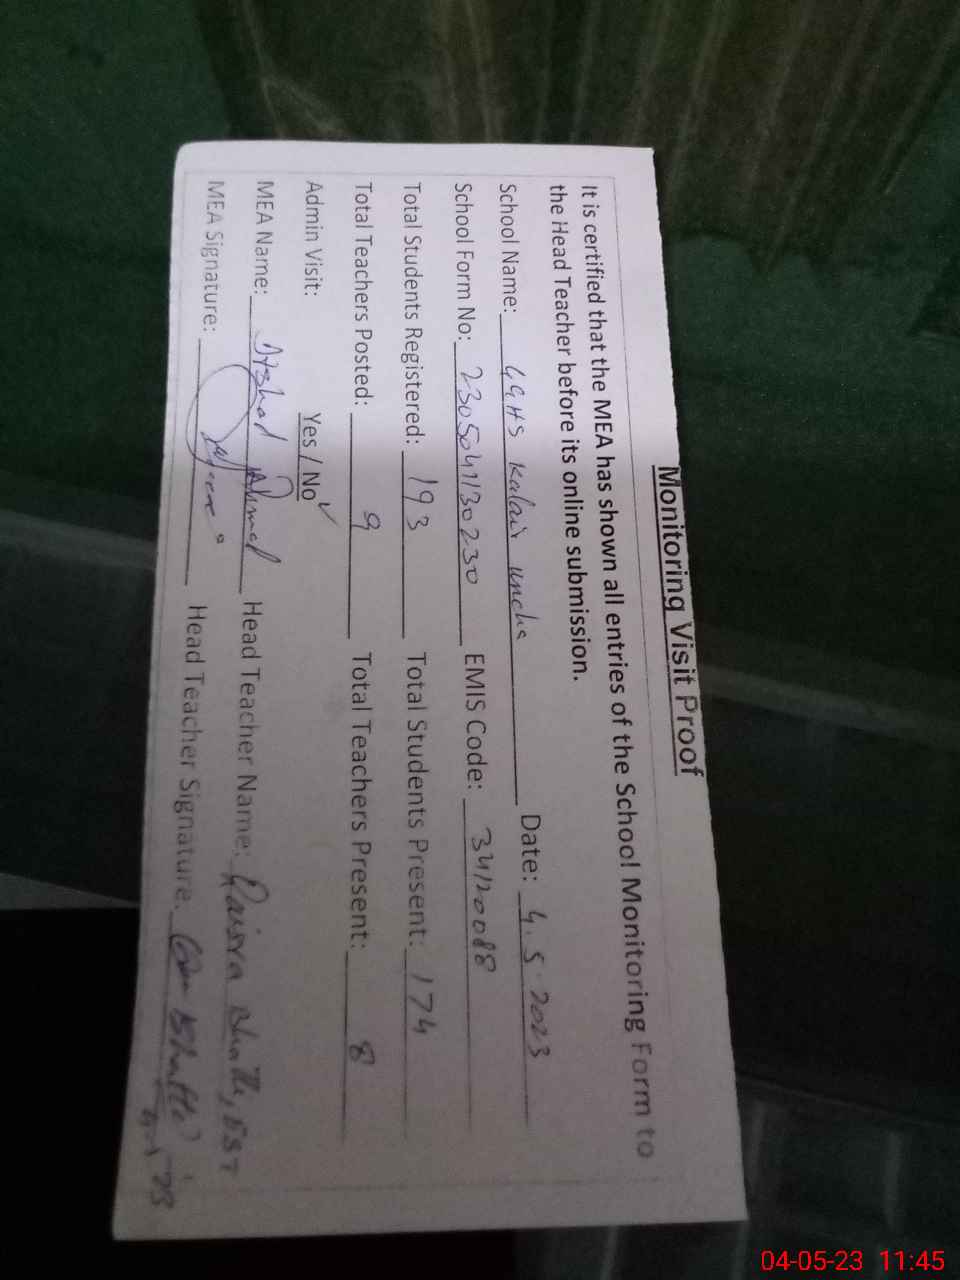 Monitoring Visit Proof
It is certified that the MEA has shown all entries of the School Monitoring Form to
the Head Teacher before its online submission.
School Name: GGHS Kalair uncha Date: 4.5.2023
School Form No: 2305041130230 EMIS Code: 34120088
Total Students Registered: 193 Total Students Present: 174
Total Teachers Posted: 9 Total Teachers Present: 8
Admin Visit: Yes / No ✓
MEA Name: Arshad Ahmed Head Teacher Name: Bhatti, EST
MEA Signature: Head Teacher Signature:
04-05-23 11:45